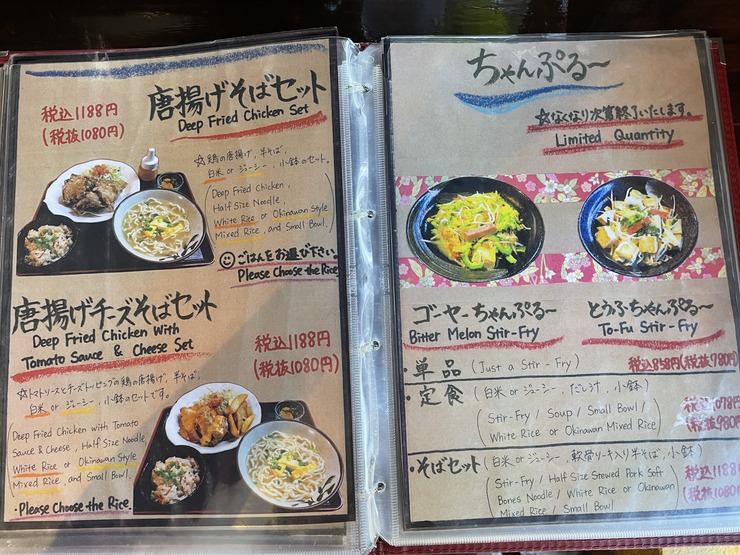 唐揚げそばセット
Deep Fried Chicken Set
税込1188円
(税抜1080円)
☆鶏の唐揚げ、半そば、
白米 or ジューシー、小鉢のセット。
(Deep Fried Chicken,
Half Size Noodle,
White Rice or Okinawan Style
Mixed Rice, and Small Bowl.)
ごはんをお選び下さい。
Please Choose the Rice.
唐揚げチーズそばセット
Deep Fried Chicken With
Tomato Sauce & Cheese Set
税込1188円
(税抜1080円)
☆トマトソースとチーズトッピングの鶏の唐揚げ、半そば、
白米 or ジューシー、小鉢のセットです。
(Deep Fried Chicken with Tomato
Sauce & Cheese, Half Size Noodle
White Rice or Okinawan Style
Mixed Rice, and Small Bowl.)
・Please Choose the Rice.
ちゃんぷる〜
☆なくなり次第終了いたします。
Limited Quantity
ゴーヤーちゃんぷる〜
Bitter Melon Stir-Fry
とうふちゃんぷる〜
To-Fu Stir-Fry
・単品 (Just a Stir-Fry) 税込858円(税抜780円)
・定食 (白米 or ジューシー、だし汁、小鉢)
(Stir-Fry / Soup / Small Bowl /
White Rice or Okinawan Mixed Rice)
税込1078円
(税抜980円)
・そばセット (白米 or ジューシー、軟骨ソーキ入り半そば、小鉢)
(Stir-Fry / Half Size Stewed Pork Soft
Bones Noodle / White Rice or Okinawan
Mixed Rice / Small Bowl)
税込1188円
(税抜1080円)